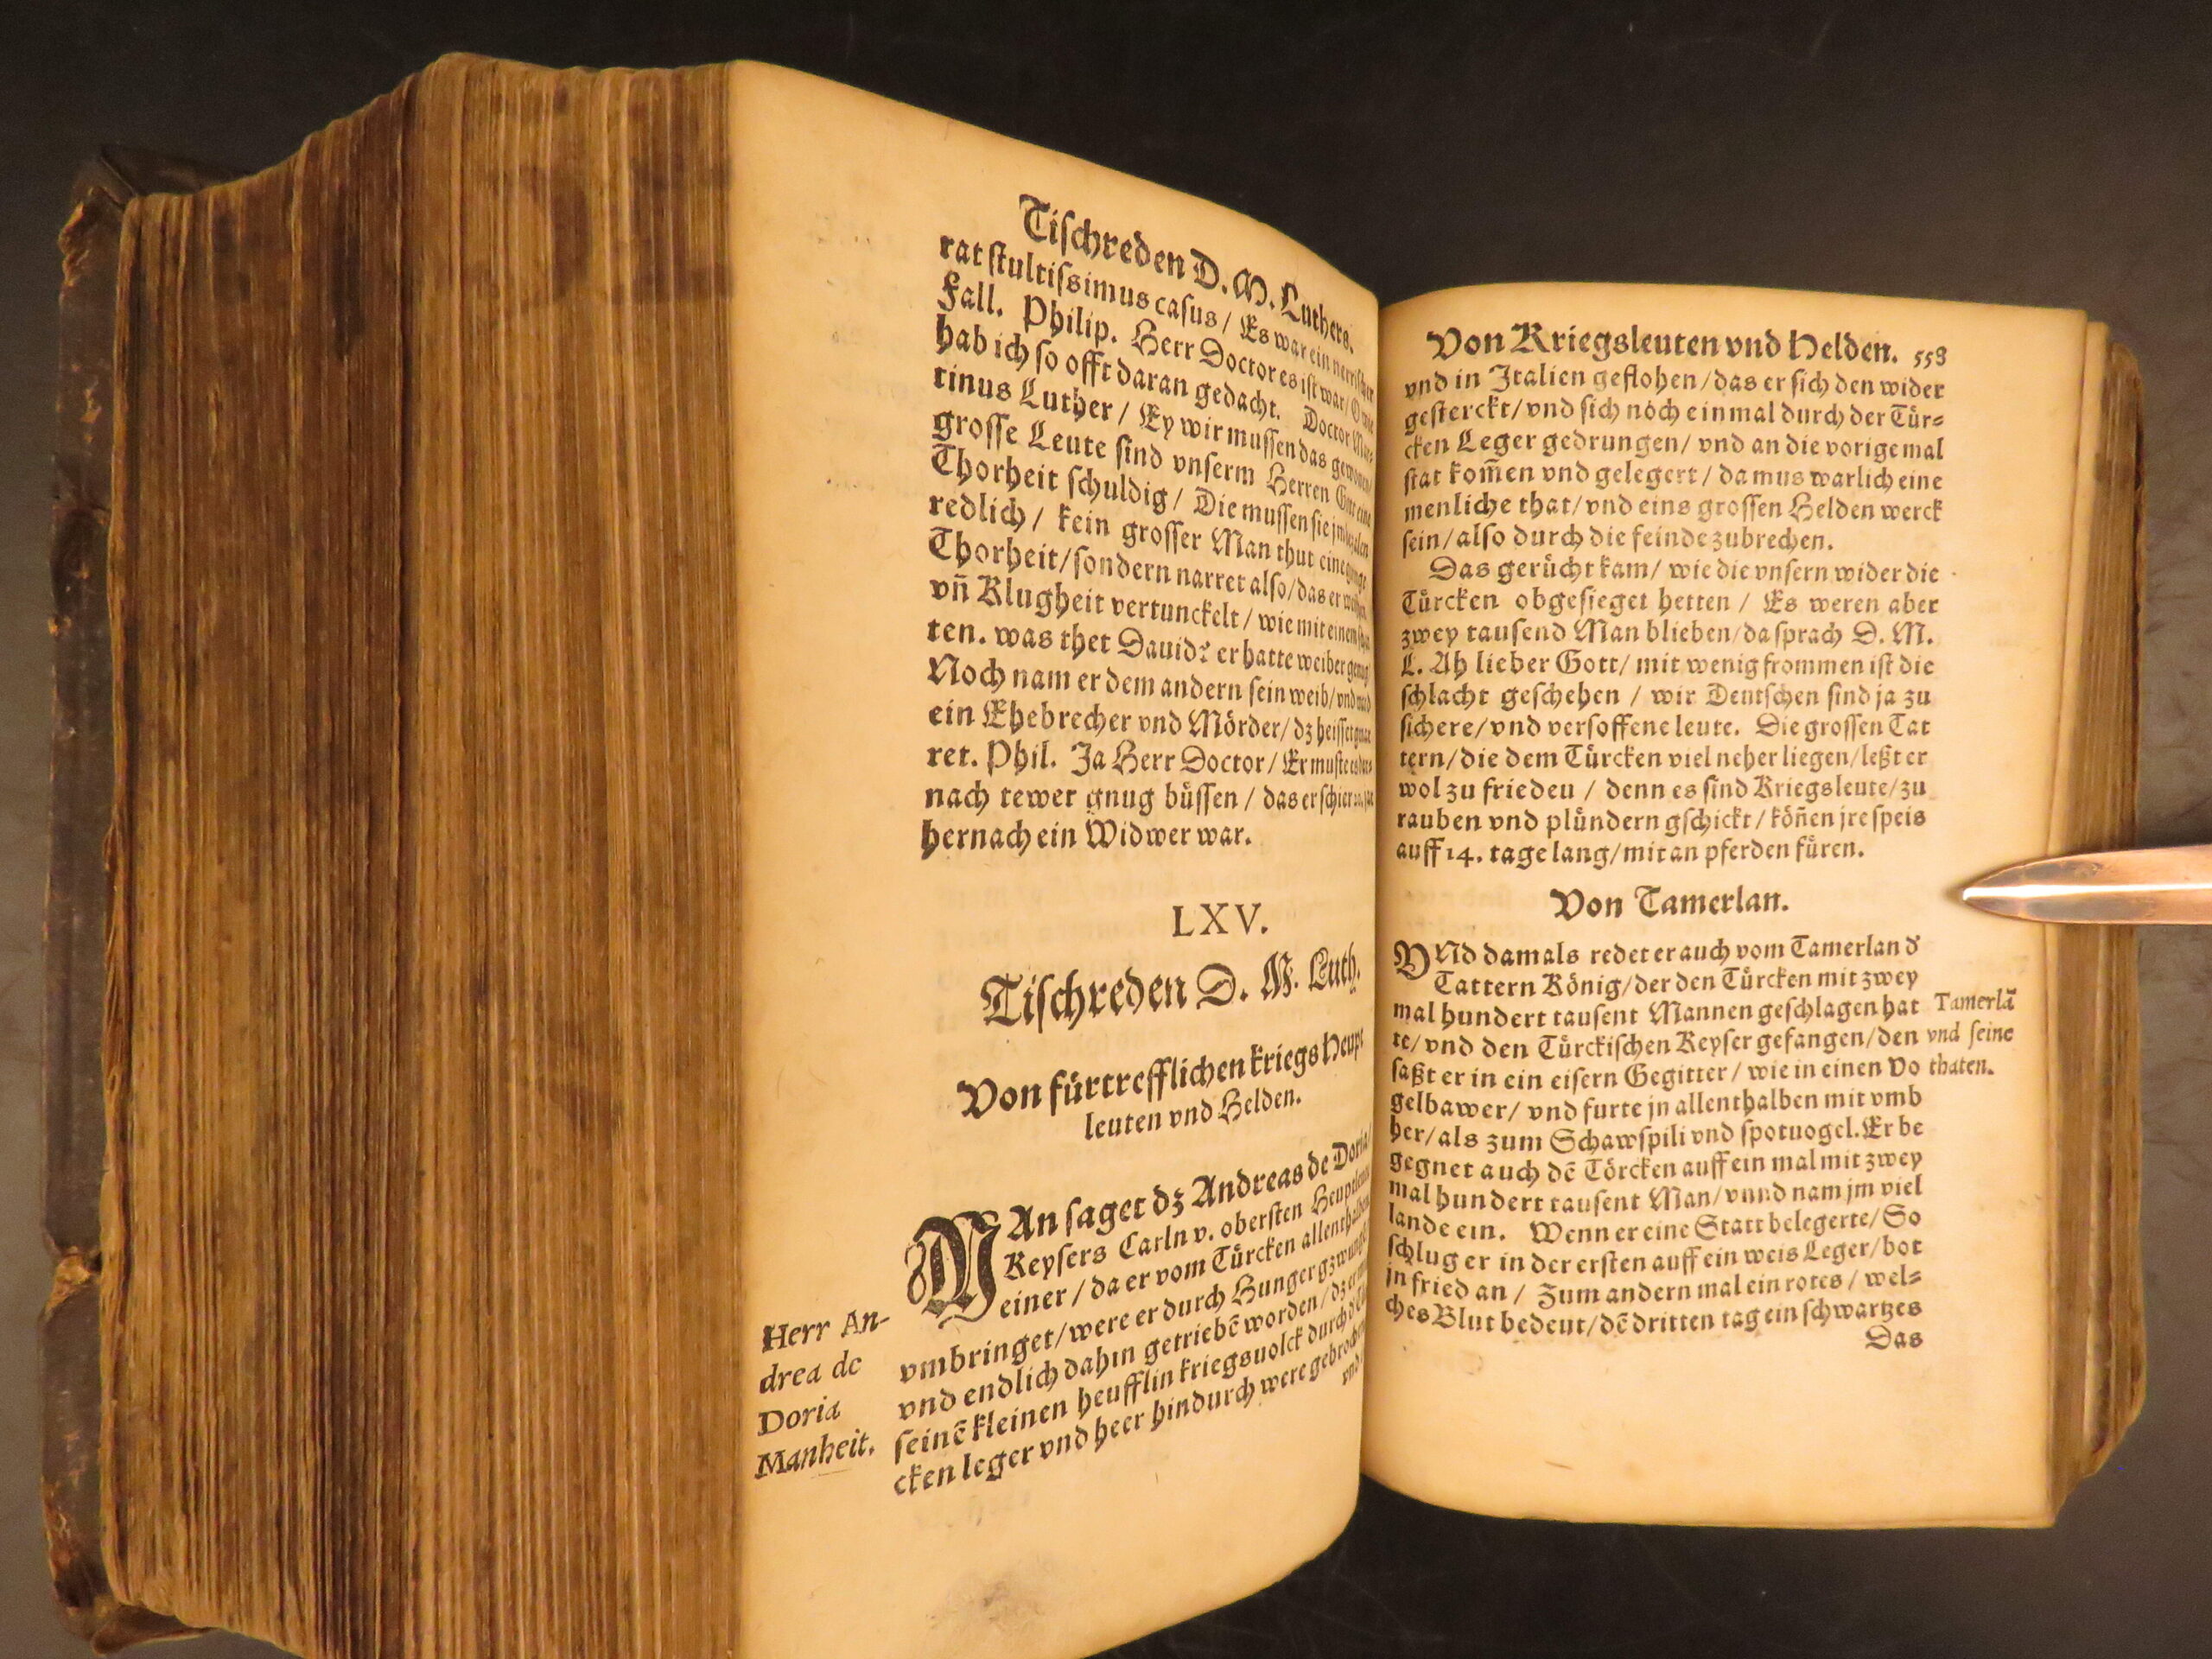 Tiſchreden D. M. Luthers.
rat ſtultiſsimus casus / Es war ein nerriſcher
Fall. Philip. Herr Doctor es iſt war /
hab ich ſo offt daran gedacht. Doctor Mar-
tinus Luther / Ey wir muſſen das
groſſe Leute ſind vnſerm Herren Gott eine
Thorheit ſchuldig / Die muſſen ſie jm
redlich / kein groſſer Man thut eine
Thorheit / ſondern narret alſo / das er
vñ Klugheit vertunckelt / wie mit einem
ten. was thet Dauid? er hatte weiber genug
Noch nam er dem andern ſein weib / vnd ward
ein Ehebrecher vnd Mörder / dz heiſſet
ret. Phil. Ja Herr Doctor / Er muſte es
nach tewer gnug büſſen / das er ſchier
hernach ein Widwer war.
LXV.
Tiſchreden D. M. Luth.
Von fürtrefflichen kriegs Heupt
leuten vnd Helden.
MAn ſaget dz Andreas de Doria
Keyſers Carln v. oberſten
einer / da er vom Türcken allenthalben
vmbringet / were er durch Hunger gzwungen
vnd endlich dahin getriebē worden / dz er
ſeinē kleinen heufflin kriegsuolck durch
cken leger vnd heer hindurch were gebrochen
vnd
Herr An-
drea de
Doria
Manheit.
Von Kriegsleuten vnd Helden. 558
vnd in Italien geflohen / das er ſich den wider
geſterckt / vnd ſich noch einmal durch der Tür-
cken Leger gedrungen / vnd an die vorige mal
ſtat kom̄en vnd gelegert / da mus warlich eine
menliche that / vnd eins groſſen Helden werck
ſein / alſo durch die feinde zubrechen.
Das gerücht kam / wie die vnſern wider die
Türcken obgeſieget hetten / Es weren aber
zwey tauſend Man blieben / da ſprach D. M.
L. Ah lieber Gott / mit wenig frommen iſt die
ſchlacht geſchehen / wir Deutſchen ſind ja zu
ſichere / vnd verſoffene leute. Die groſſen Tat
tern / die dem Türcken viel neher liegen / leßt er
wol zu friedeu / denn es ſind Kriegsleute / zu
rauben vnd plündern gſchickt / köñen jre ſpeis
auff 14. tage lang / mit an pferden füren.
Von Tamerlan.
VNd damals redet er auch vom Tamerlan ð
Tattern König / der den Türcken mit zwey
mal hundert tauſent Mannen geſchlagen hat
te / vnd den Türckiſchen Keyſer gefangen / den
ſaßt er in ein eiſern Gegitter / wie in einen Vo
gelbawer / vnd furte jn allenthalben mit vmb
her / als zum Schawſpili vnd ſpotuogel. Er be
gegnet auch dē Törcken auff ein mal mit zwey
mal hundert tauſent Man / vnnd nam jm viel
lande ein. Wenn er eine Statt belegerte / So
ſchlug er in der erſten auff ein weis Leger / bot
jn fried an / Zum andern mal ein rotes / wel-
ches Blut bedeut / dē dritten tag ein ſchwartzes
Das
Tamerlā
vnd ſeine
thaten.